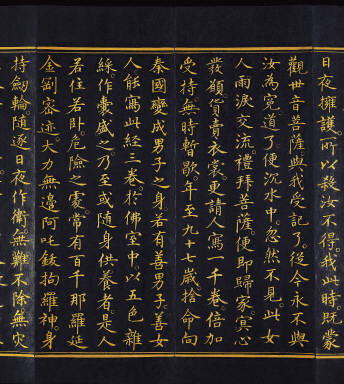 日夜擁護。所以殺汝不得。我此時。既蒙
觀世音菩薩與我受記了。從今永不與
汝為寃道了便沉水中。忽然不見。此女
人雨淚交流。禮拜菩薩。便即歸家。冥心
發願。貨賣衣裳。更請人寫一千卷。倍加
受持。無時暫歇。年至九十七歲。捨命向
秦國變成男子之身若有善男子善女
人能寫此經三卷。於佛室中。以五色雜
綵。作囊盛之。乃至或隨身供養者。是人
若住若卧。危險之處。常有百千那羅延
金剛密迹。大力無邊。阿吒鈸拘羅神。身
持劒輪。隨逐日夜作衛。無難不除。無灾